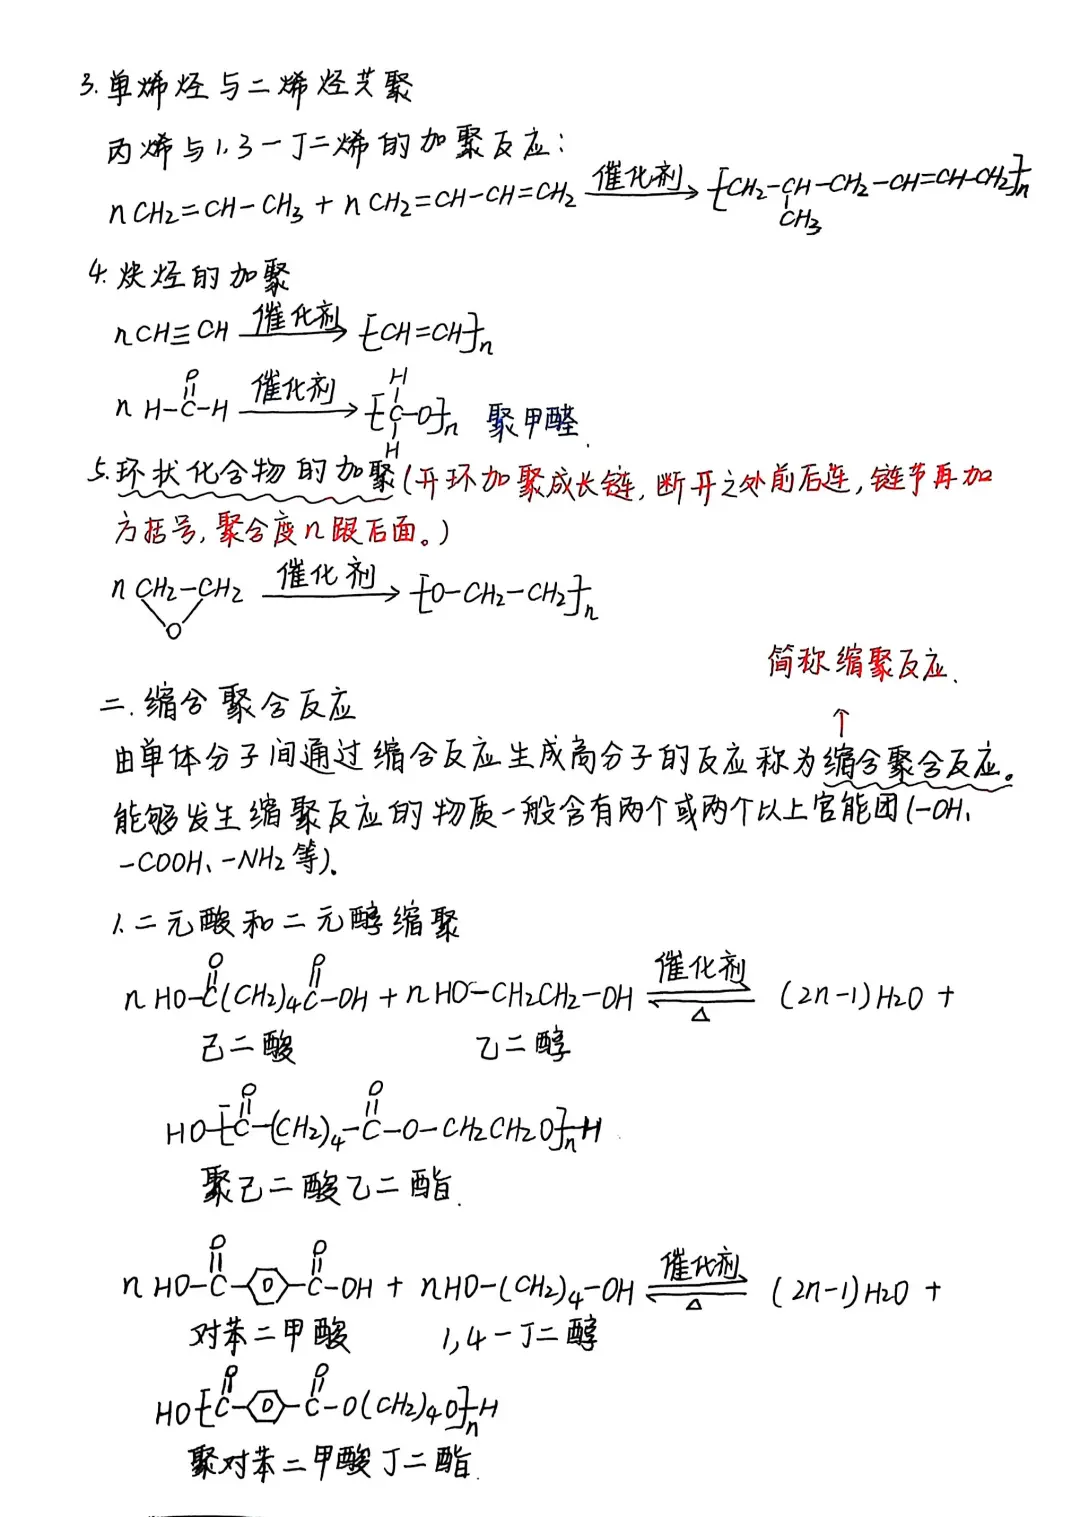 3.单烯烃与二烯烃共聚
丙烯与1,3-丁二烯的加聚反应:
nCH2=CH-CH3+nCH2=CH-CH=CH2 催化剂→ [CH2-CH-CH2-CH=CH-CH2]n
CH3
4.炔烃的加聚
nCH≡CH 催化剂→ [CH=CH]n
O H
n H-C-H 催化剂→ [C-O]n 聚甲醛.
H
5.环状化合物的加聚(开环加聚成长链,断开之处前后连,链节再加
方括号,聚合度n跟后面。)
n CH2-CH2 催化剂→ [O-CH2-CH2]n
O
简称缩聚反应.
↑
二.缩合聚合反应
由单体分子间通过缩合反应生成高分子的反应称为缩合聚合反应。
能够发生缩聚反应的物质一般含有两个或两个以上官能团(-OH、
-COOH、-NH2等)。
1.二元酸和二元醇缩聚
O O
n HO-C(CH2)4C-OH+nHO-CH2CH2-OH 催化剂⇌△ (2n-1)H2O+
己二酸 乙二醇
O O
HO[C-(CH2)4-C-O-CH2CH2O]nH
聚己二酸乙二酯.
O O
n HO-C-⌬-C-OH + nHO-(CH2)4-OH 催化剂⇌△ (2n-1)H2O+
对苯二甲酸 1,4-丁二醇
O O
HO[C-⌬-C-O(CH2)4O]nH
聚对苯二甲酸丁二酯.